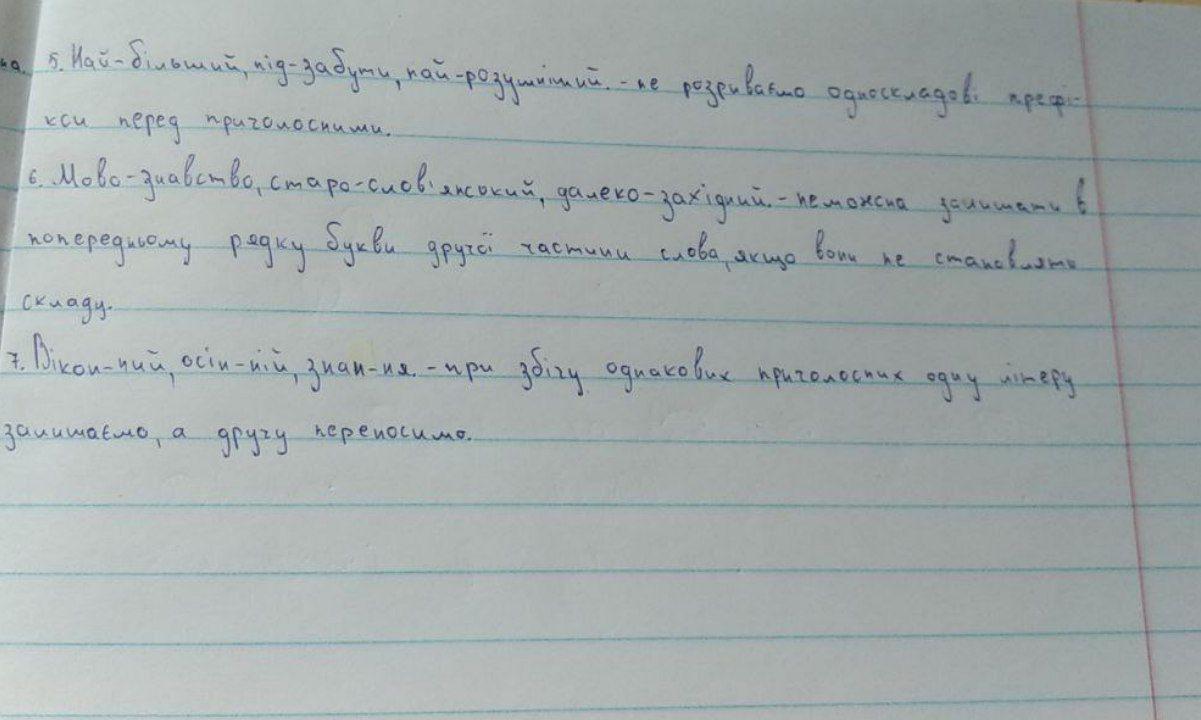 на. 5. Най-більший, під-забути, най-розумніший. - не розриваємо односкладові префі-
кси перед приголосними.
6. Мово-знавство, старо-слов'янський, далеко-західний. - неможна залишати в
попередньому рядку букви другої частини слова, якщо вони не становлять
складу.
7. Вікон-ний, осін-ній, знан-ня. - при збігу однакових приголосних одну літеру
залишаємо, а другу переносимо.